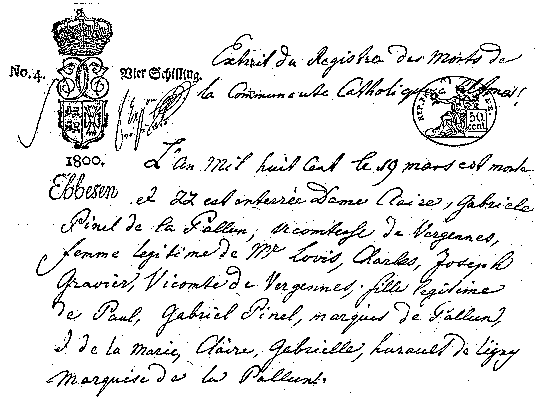 Extrait du Registre des Morts de
la Communauté Catholique d'
No. 4. Vier Schilling.
50 cent
1800.
Ebbesen
L'an mil huit Cent le 19 mars est morte
et 22 est enterrée Dame Claire, Gabriele
Pinel de la Pallun, vicomtesse de Vergennes,
femme legitime de Mr. Louis, Charles, Joseph
Gravier, Vicomte de Vergennes, fille legitime
de Paul, Gabriel Pinel, marquis de Pallun,
& de la Marie, Claire, Gabrielle, hurault de ligny
Marquise de la Pallun.